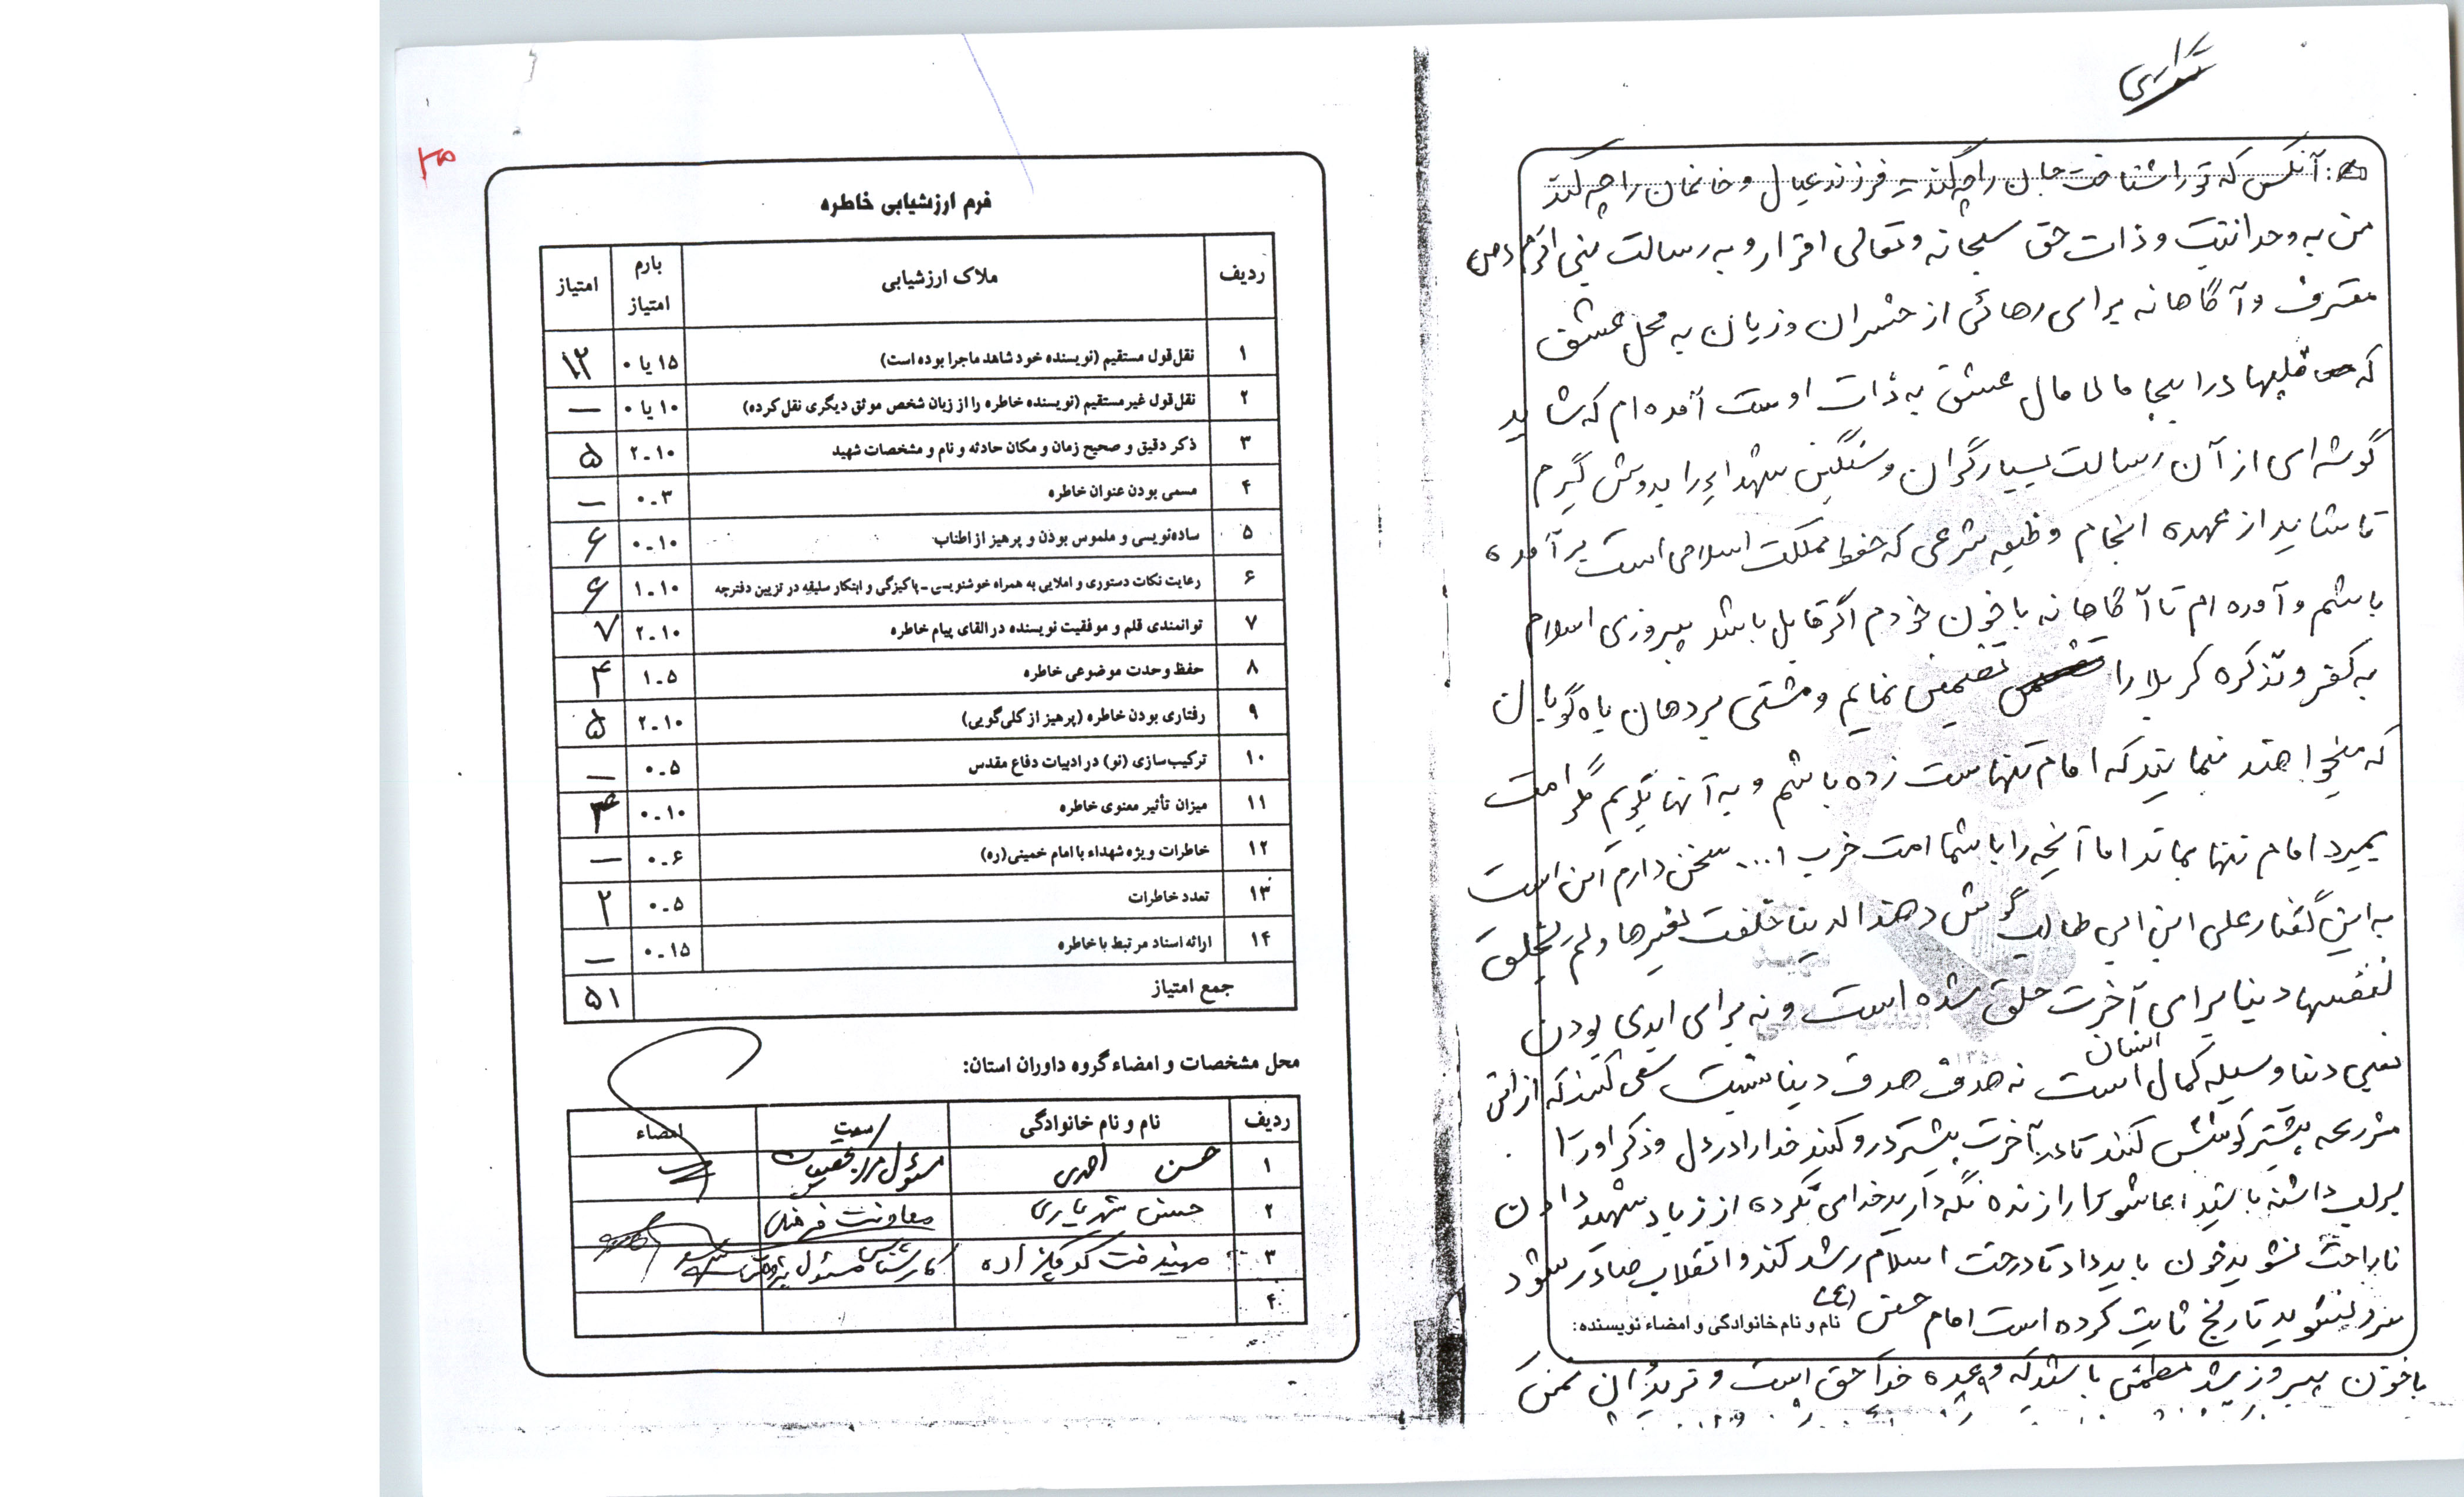 آنکس که تو را شناخت جان را چه کند فرزند و عیال و خانمان را چه کند
من به وحدانیت و ذات حق سبحانه و تعالی اقرار و به رسالت نبی اکرم (ص)
معترف و آگاهانه برای رهائی از خسران و زیان به محل عشق
که قلبها در اینجا مالامال عشق به ذات اوست آمده ام که شاید
گوشه ای از آن رسالت بسیار گران و سنگین شهداء را بدوش گیرم
تا شاید از عهده انجام وظیفه شرعی که حفظ مملکت اسلامی است برآمده
باشم و آمده ام تا آگاهانه با خون خودم اگر قابل باشد پیروزی اسلام
به کفر و تذکره کربلا را تضمین نمایم و مشتی بر دهان یاوه گویان
که میخواهند بنمایند که امام تنهاست زده باشم و به آنها بگویم مگر امت
بمیرد امام تنها بماند اما آنچه را با شما امت حزب ا... سخن دارم این است
به این گفتار علی ابن ابی طالب گوش دهند الدینا خلقت لغیرها ولم تخلق
لنفسها دینا برای آخرت خلق شده است و نه برای ابدی بودن
یعنی دنیا وسیله کمال انسان است نه هدف هدف دینا نیست سعی کنند که از این
مزرعه بیشتر کوشش کنند تا در آخرت بیشتر درو کنند خدا را در دل و ذکر او را
بر لب داشته باشید عاشورا را زنده نگه دارید خدای نکرده از زیاد شهید دادن
ناراحت نشوید خون باید داد تا درخت اسلام رشد کند و انقلاب صادر شود
سرد نشوید تاریخ ثابت کرده است امام حسین (ع)
نام و نام خانوادگی و امضاء نویسنده:
با خون پیروز شد مطمئن باشید که وعده خدا حق است و
۳۵
فرم ارزشیابی خاطره
ردیف ملاک ارزشیابی بارم امتیاز امتیاز
۱ نقل‌قول مستقیم (نویسنده خود شاهد ماجرا بوده است) ۱۵ یا ۰ ۱۲
۲ نقل‌قول غیرمستقیم (نویسنده خاطره را از زبان شخص موثق دیگری نقل کرده) ۱۰ یا ۰ —
۳ ذکر دقیق و صحیح زمان و مکان حادثه و نام و مشخصات شهید ۲-۱۰ ۵
۴ مسمی بودن عنوان خاطره ۰-۳ —
۵ ساده‌نویسی و ملموس بودن و پرهیز از اطناب ۰-۱۰ ۶
۶ رعایت نکات دستوری و املایی به همراه خوشنویسی ـ پاکیزگی و ابتکار سلیقه در تزیین دفترچه ۱-۱۰ ۶
۷ توانمندی قلم و موفقیت نویسنده در القای پیام خاطره ۲-۱۰ ۷
۸ حفظ وحدت موضوعی خاطره ۱-۵ ۴
۹ رفتاری بودن خاطره (پرهیز از کلی‌گویی) ۲-۱۰ ۵
۱۰ ترکیب‌سازی (نو) در ادبیات دفاع مقدس ۰-۵ —
۱۱ میزان تأثیر معنوی خاطره ۰-۱۰ ۴
۱۲ خاطرات ویژه شهداء با امام خمینی(ره) ۰-۶ —
۱۳ تعدد خاطرات ۰-۵ ۲
۱۴ ارائه اسناد مرتبط با خاطره ۰-۱۵ —
جمع امتیاز ۵۱
محل مشخصات و امضاء گروه داوران استان:
ردیف نام و نام خانوادگی سمت امضاء
۱ حسن احمدی مسئول مرکز تحقیقات
۲ حسن شهریاری معاونت فرهنگی
۳ مهیندخت کارشناس مسئول
۴